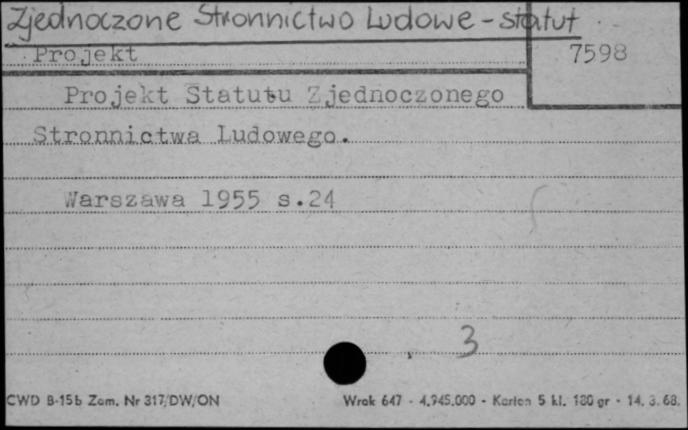 Zjednoczone Stronnictwo Ludowe - statut
Projekt 7598
Projekt Statutu Zjednoczonego
Stronnictwa Ludowego.
Warszawa 1955 s.24
3
CWD B-15b Zam. Nr 317/DW/ON Wrak 647 - 4.945.000 - Karton 5 kl. 180 gr - 14. 3. 68.